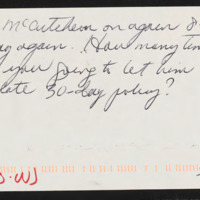 McCutcheon on again 8-
ay again. How many tim
you going to let him
late 30-day policy?